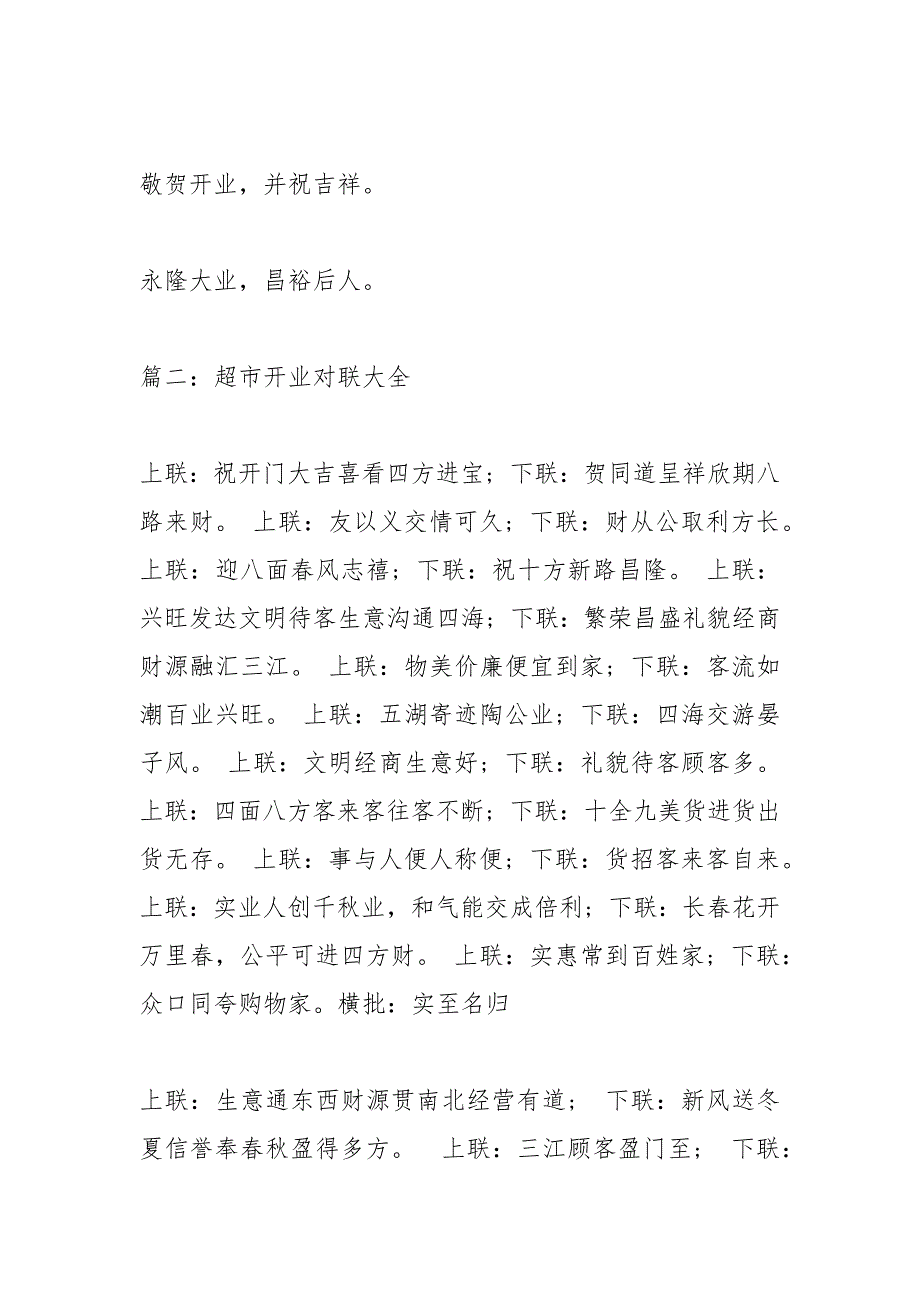 敬贺开业，并祝吉祥。
永隆大业，昌裕后人。
篇二：超市开业对联大全
上联：祝开门大吉喜看四方进宝；下联：贺同道呈祥欣期八
路来财。 上联：友以义交情可久；下联：财从公取利方长。
上联：迎八面春风志禧；下联：祝十方新路昌隆。 上联：
兴旺发达文明待客生意沟通四海；下联：繁荣昌盛礼貌经商
财源融汇三江。 上联：物美价廉便宜到家；下联：客流如
潮百业兴旺。 上联：五湖寄迹陶公业；下联：四海交游晏
子风。 上联：文明经商生意好；下联：礼貌待客顾客多。
上联：四面八方客来客往客不断；下联：十全九美货进货出
货无存。 上联：事与人便人称便；下联：货招客来客自来。
上联：实业人创千秋业，和气能交成倍利；下联：长春花开
万里春，公平可进四方财。 上联：实惠常到百姓家；下联：
众口同夸购物家。横批：实至名归
上联：生意通东西财源贯南北经营有道； 下联：新风送冬
夏信誉奉春秋盈得多方。 上联：三江顾客盈门至； 下联：